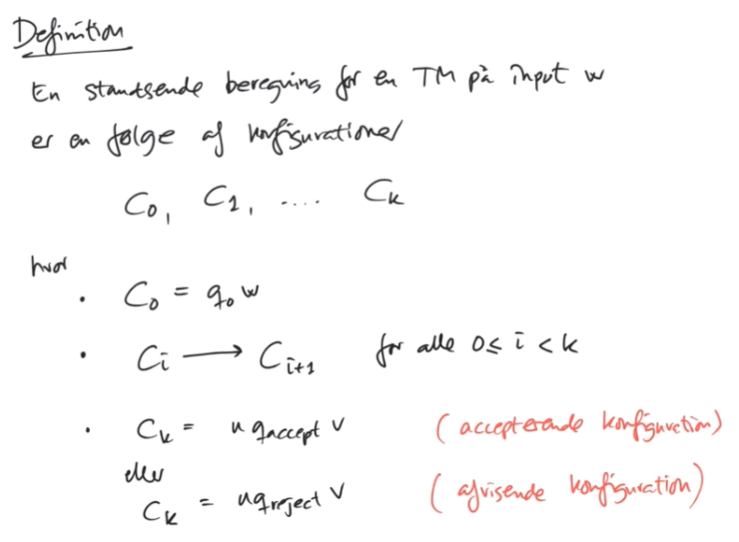 Definition
En standsende beregning for en TM på input w
er en følge af konfigurationer
C₀, C₁, .... Cₖ
hvor
• C₀ = q₀ w
• Cᵢ ⟶ Cᵢ₊₁ for alle 0 ≤ i < k
• Cₖ = u q_accept v (accepterende konfiguration)
eller
Cₖ = u q_reject v (afvisende konfiguration)